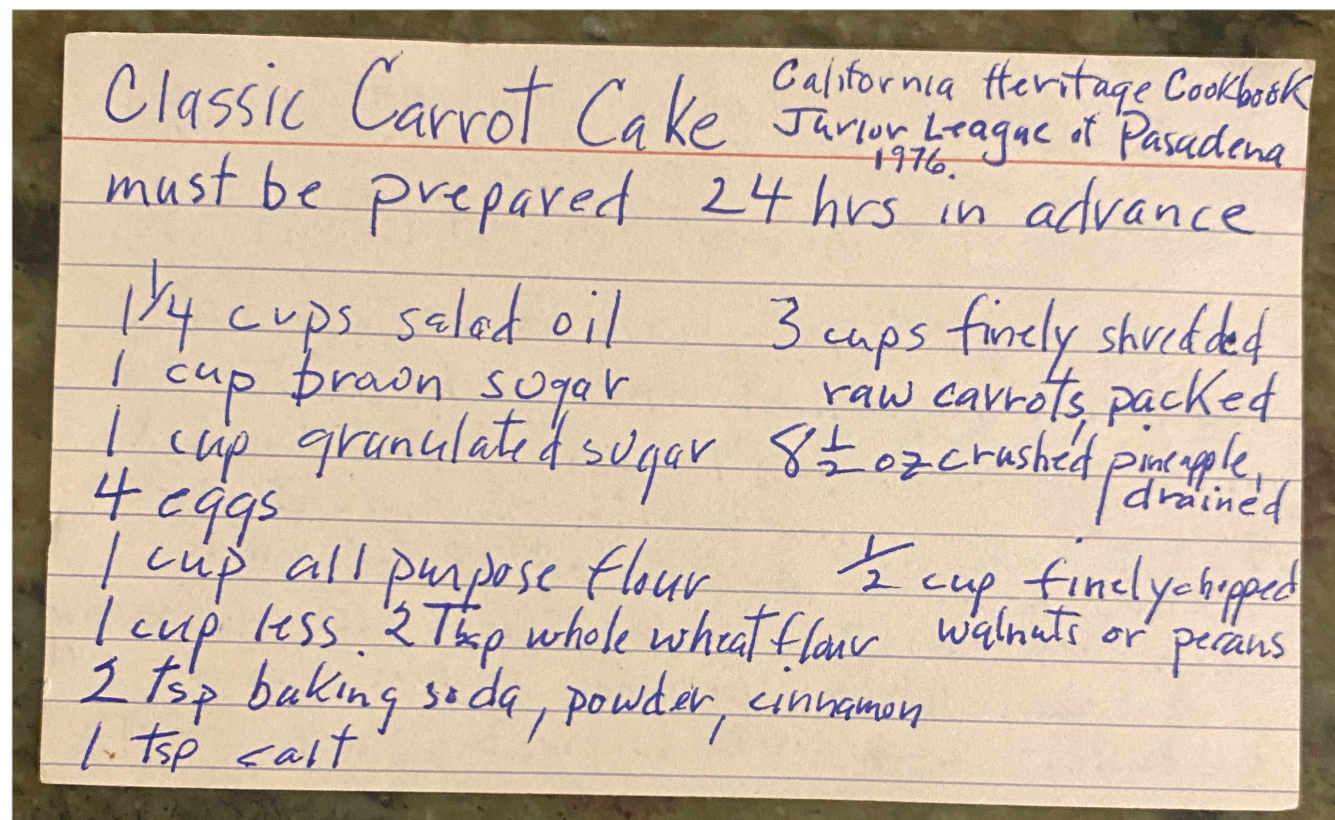 Classic Carrot Cake
California Heritage Cookbook
Junior League of Pasadena
1976.
must be prepared 24 hrs in advance
1 1/4 cups salad oil
1 cup brown sugar
1 cup granulated sugar
4 eggs
1 cup all purpose flour
1 cup less 2 Tbsp whole wheat flour
2 tsp baking soda, powder, cinnamon
1 tsp salt
3 cups finely shredded
raw carrots, packed
8 1/2 oz crushed pineapple,
drained
1/2 cup finely chopped
walnuts or pecans